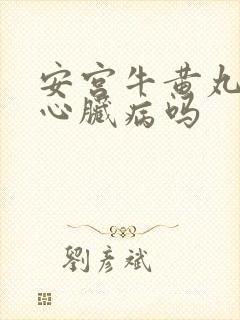 安宫牛黄丸
心臟病吗
劉彦斌